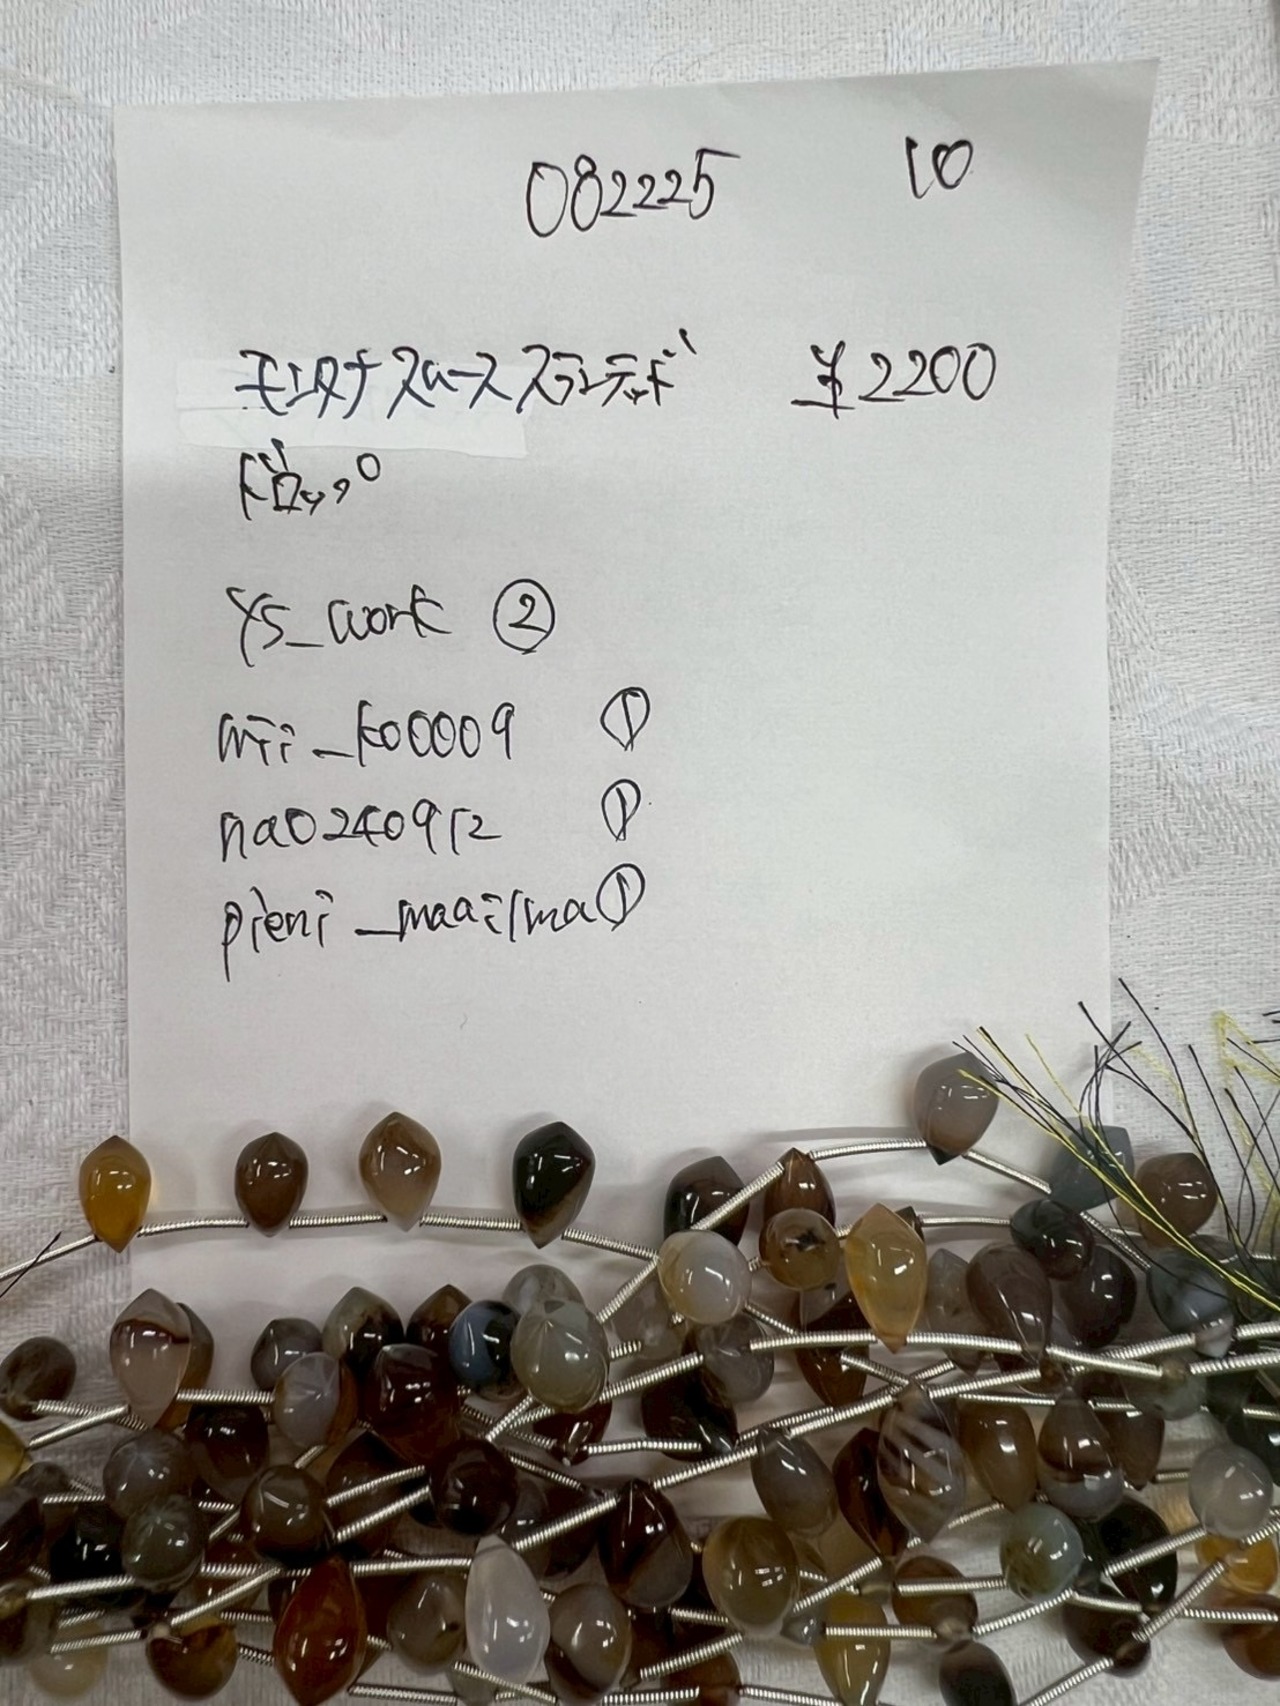 082225 10
モンタナ スムース スランテッド ¥2200
ドロップ
ys_work ②
mii_ko0009 ①
na0240912 ①
pieni_maailma ①